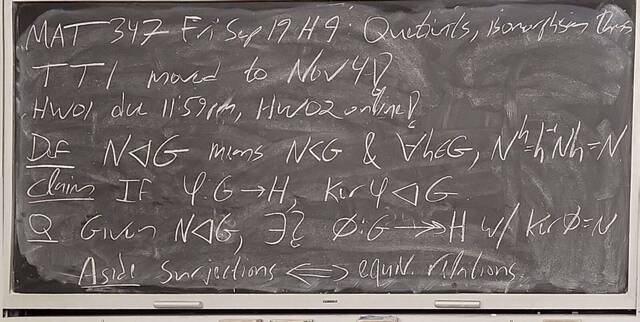 MAT 347 Fri Sep 19 H9: Quotients, isomorphism thms
TT1 moved to Nov 4!
HW01 due 11:59pm, HW02 online!
Def N◁G means N<G & ∀h∈G, N^h=h⁻¹Nh=N
Claim If φ:G→H, ker φ◁G
Q Given N◁G, ∃? ϕ:G↠H w/ ker ϕ=N
Aside Surjections ⟺ equiv. relations